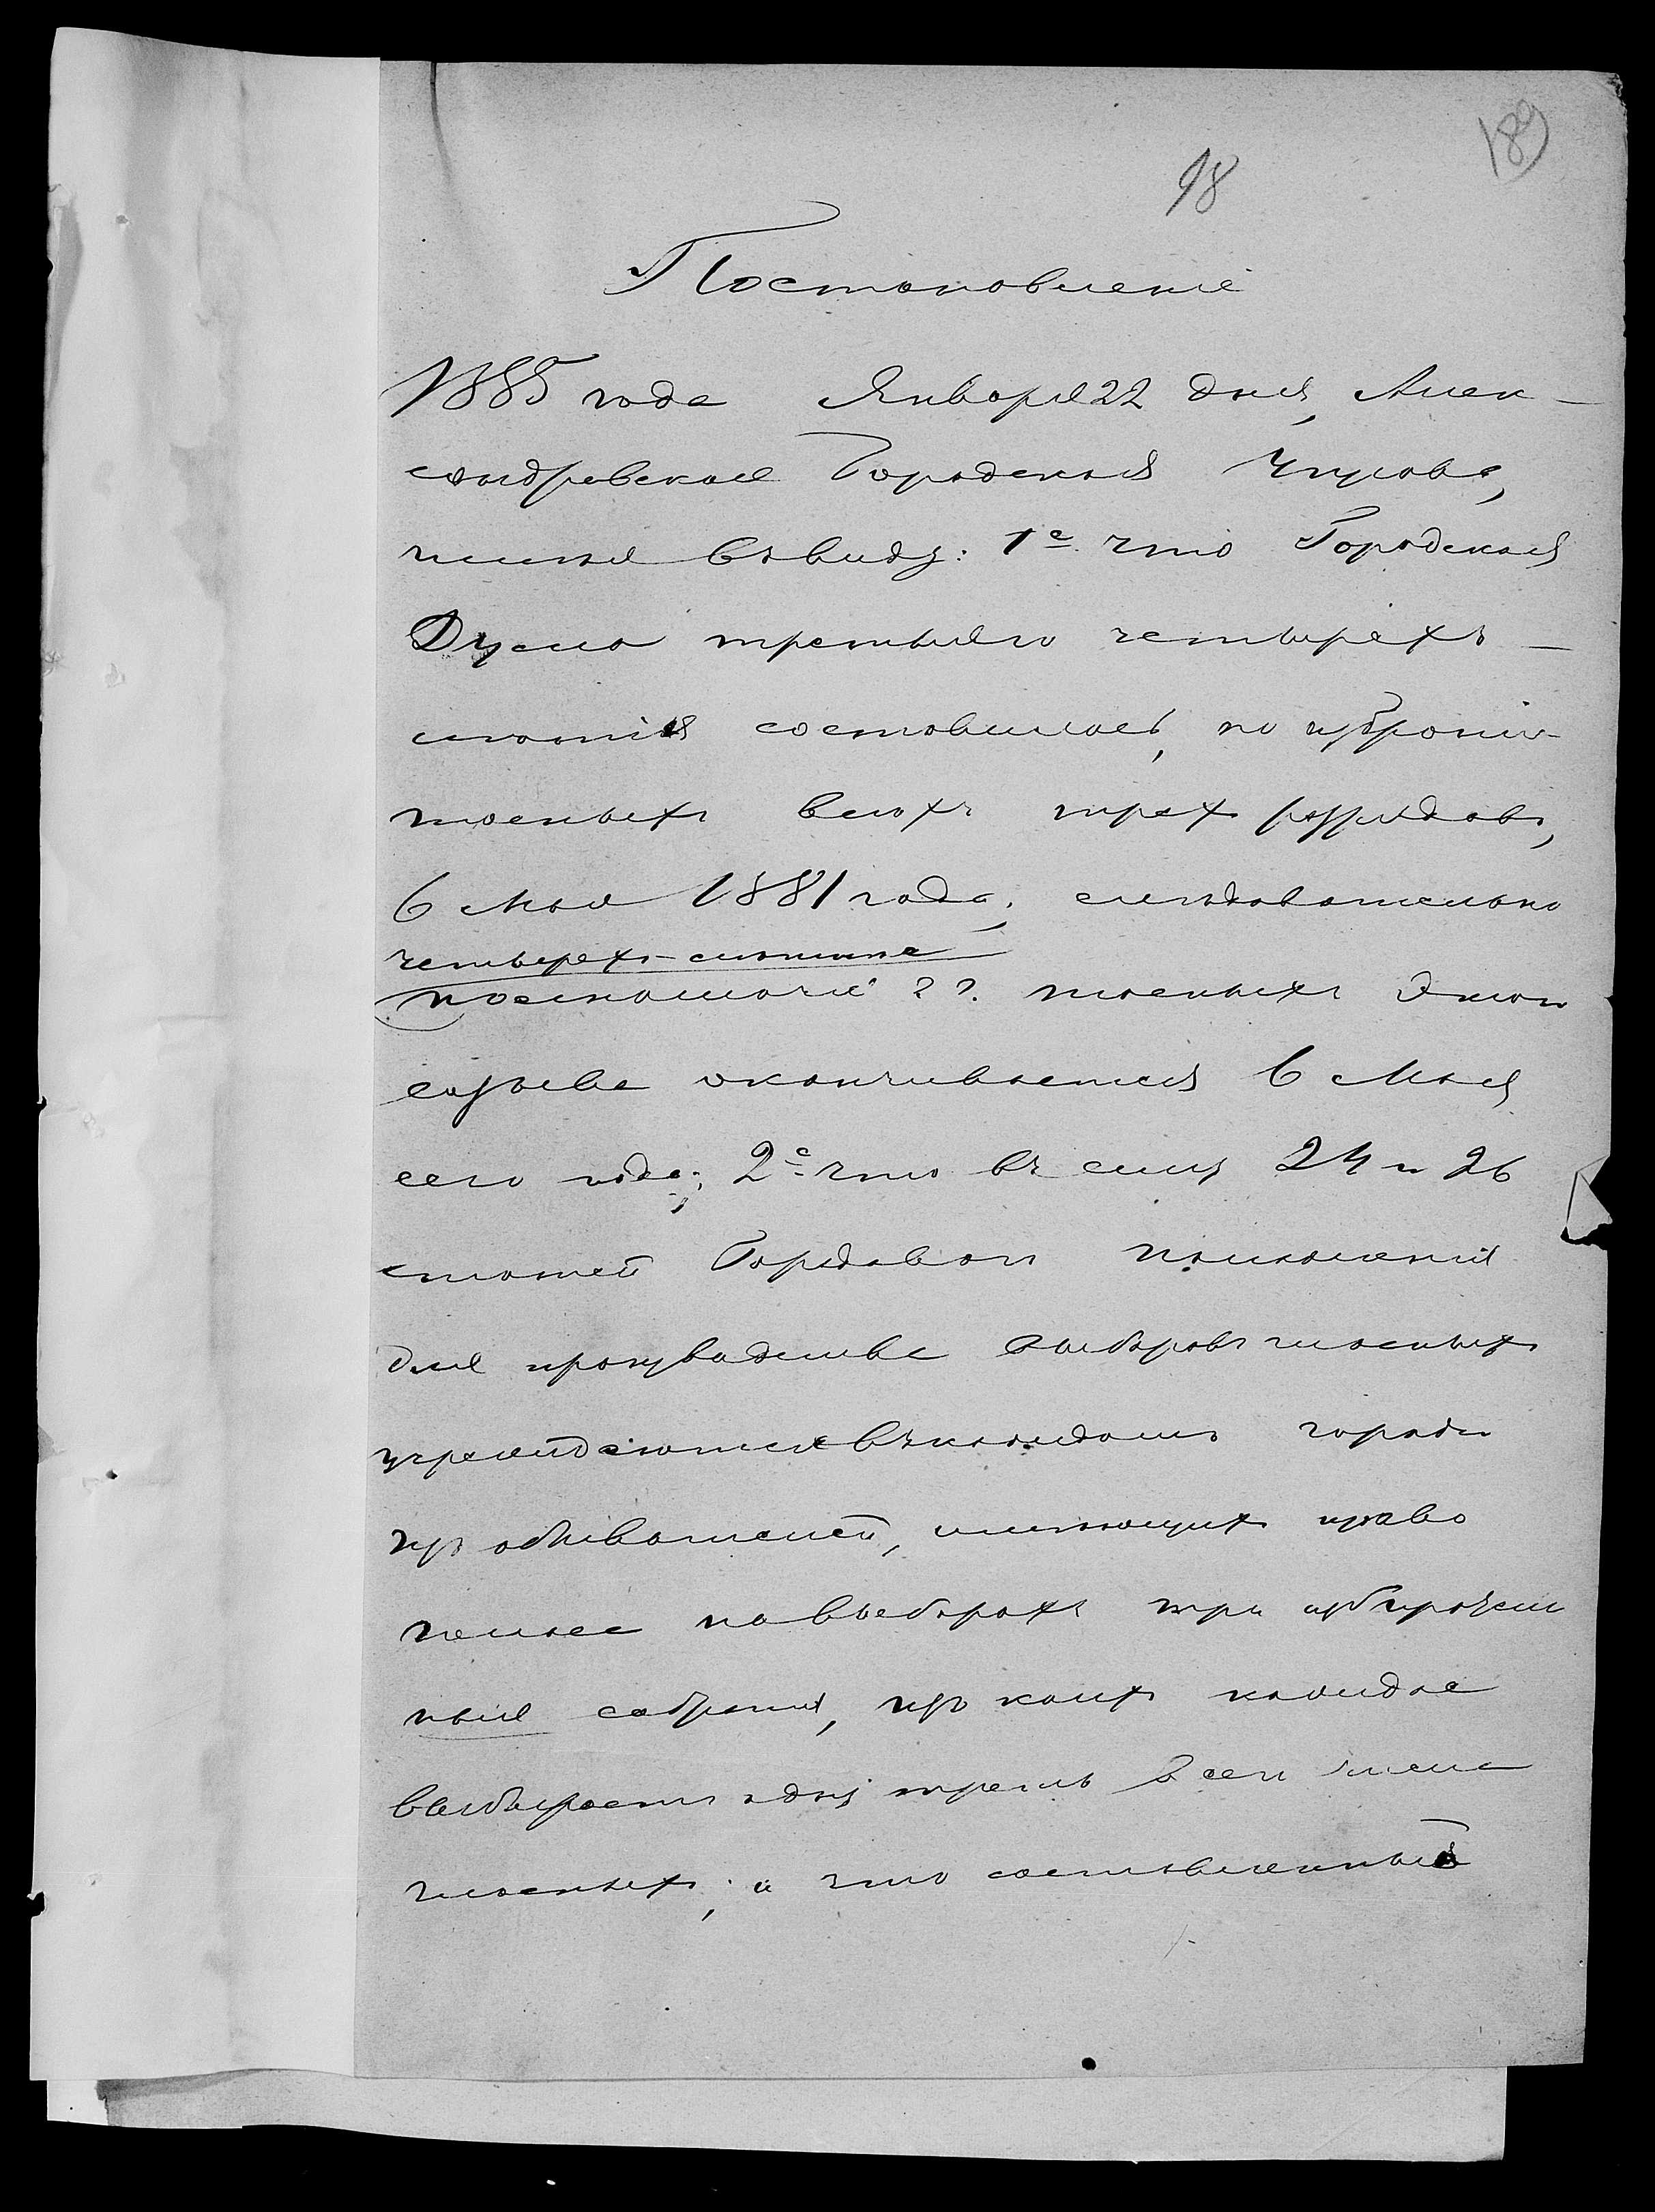 189
98
Постановленіе
1885 года Января 22 дня, Алек-
сандровская Городская Управа,
имѣя въ виду: 1е что Городская
Дума третьяго четырехъ-
лѣтія составилась, по избраніи
гласныхъ всѣхъ трехъ разрядовъ,
6 Мая 1881 года; слѣдовательно
четырехъ-лѣтніе
полномочіе г.г. гласныхъ этого
созыва оканчивается 6 Мая
сего года; 2е что въ силу 24 и 26
статей Городоваго положенія
для производства выборовъ гласныхъ
учреждаются въ каждомъ городѣ
изъ обывателей, имѣющихъ право
голоса на выборахъ три избиратель
ныя собранія, изъ коихъ каждое
выбираетъ одну треть всего числа
гласныхъ; и что составленный